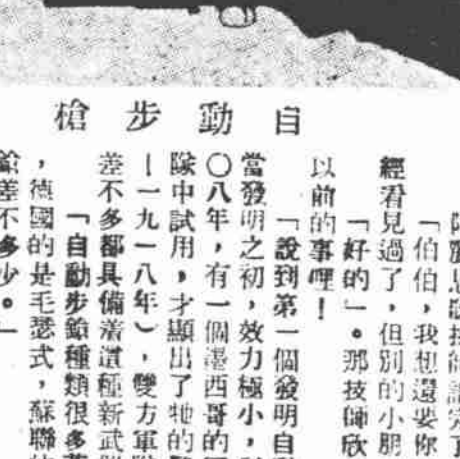 自動步槍
「伯伯，我想還要你
經看見過了，但別的小朋
「好的」。那技師欣
以前的事哩！
「說到第一個發明自
當發明之初，效力極小，
〇八年，有一個墨西哥的
隊中試用，才顯出了牠的
－一九一八年），雙方軍
差不多都具備着這種新武
「自動步鎗種類很多
，德國的是毛瑟式，蘇聯
鎗差不多少。」